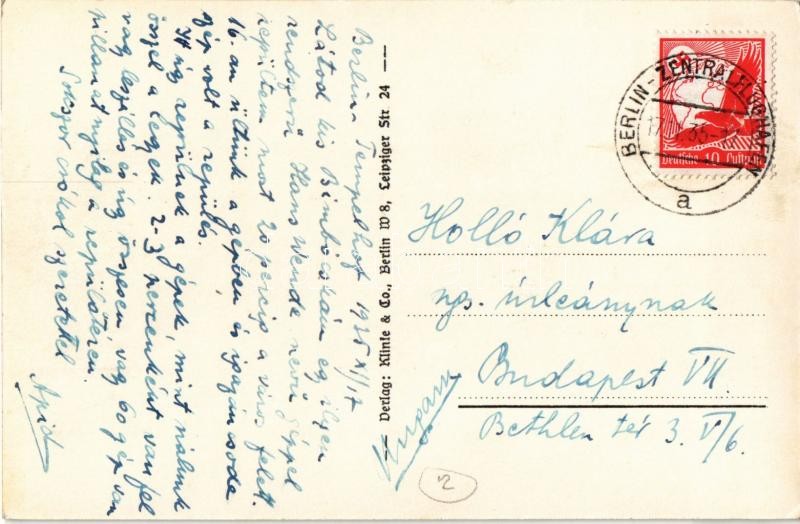 Berlin Tempelhof 1935 XI/17
Látod kis Bimbócskám egy ilyen
rendszerű Hans Wende nevű géppel
repültem most 20 percig a város felett.
16-an ültünk a gépben és igazán csoda
szép volt a repülés.
Itt úgy repülnek a gépek, mint nálunk
ősszel a legyek. 2-3 percenként van fel
vagy leszállás és úgy összesen vagy 60 gép van
pillanatnyilag a repülőtéren.
Sokszor csókol szeretettel
Apád
— Verlag: Klinke & Co., Berlin W 8, Leipziger Str 24 —
BERLIN-ZENTRALFLUGHAFEN
a
Deutsche 10 Luftpost
Holló Klára
ngs. úrleánynak
Budapest VII.
Bethlen tér 3. V/6.
Ungarn
2